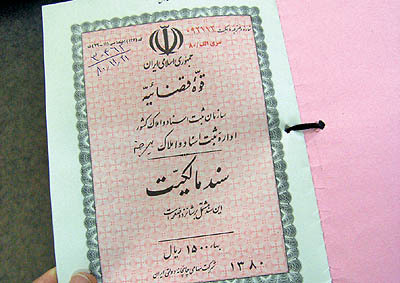 سری الف/۸۰
جمهوری اسلامی ایران
قوهٔ قضائیه
سازمان ثبت اسناد و املاک کشور
اداره ثبت اسناد و املاک
سند مالکیت
این سند مشتمل بر شانزده صفحه است
بهاء ۱۵۰۰ ریال
شرکت سهامی چاپخانه دولتی ایران
۱۳۸۰